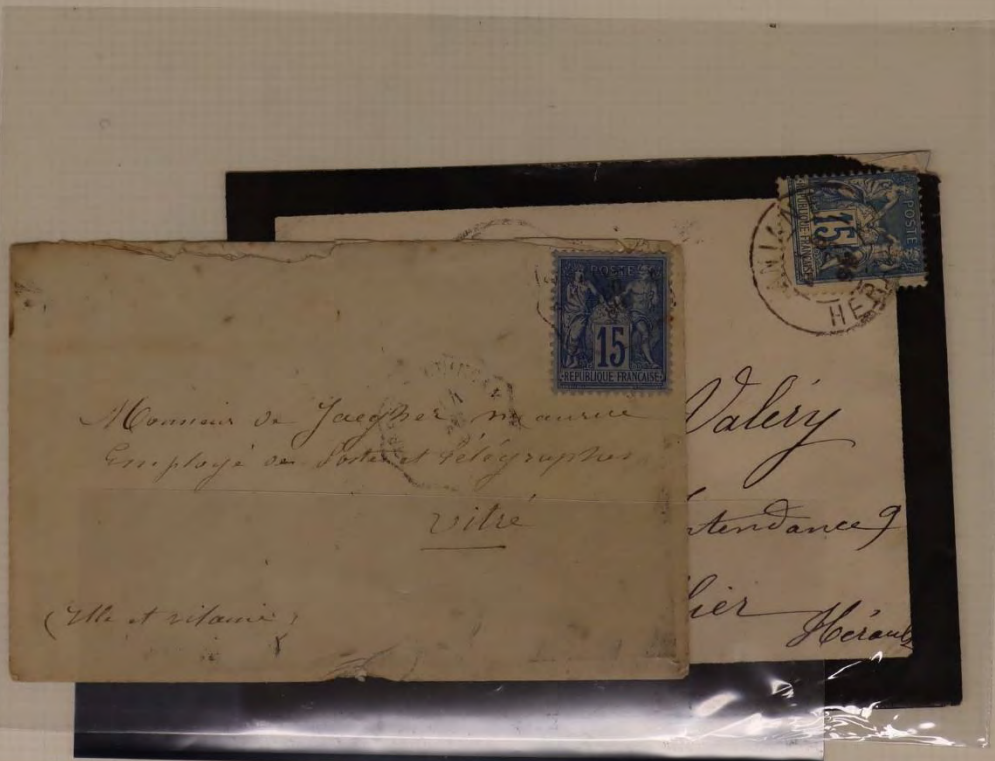 POSTE
15
RÉPUBLIQUE FRANÇAISE
Monsieur de Jaegher maurice
Employé des Postes et Télégraphes
vitré
(Ille et vilaine)
POSTE
15
HER
Valéry
ntendance 9
lier
Hérault